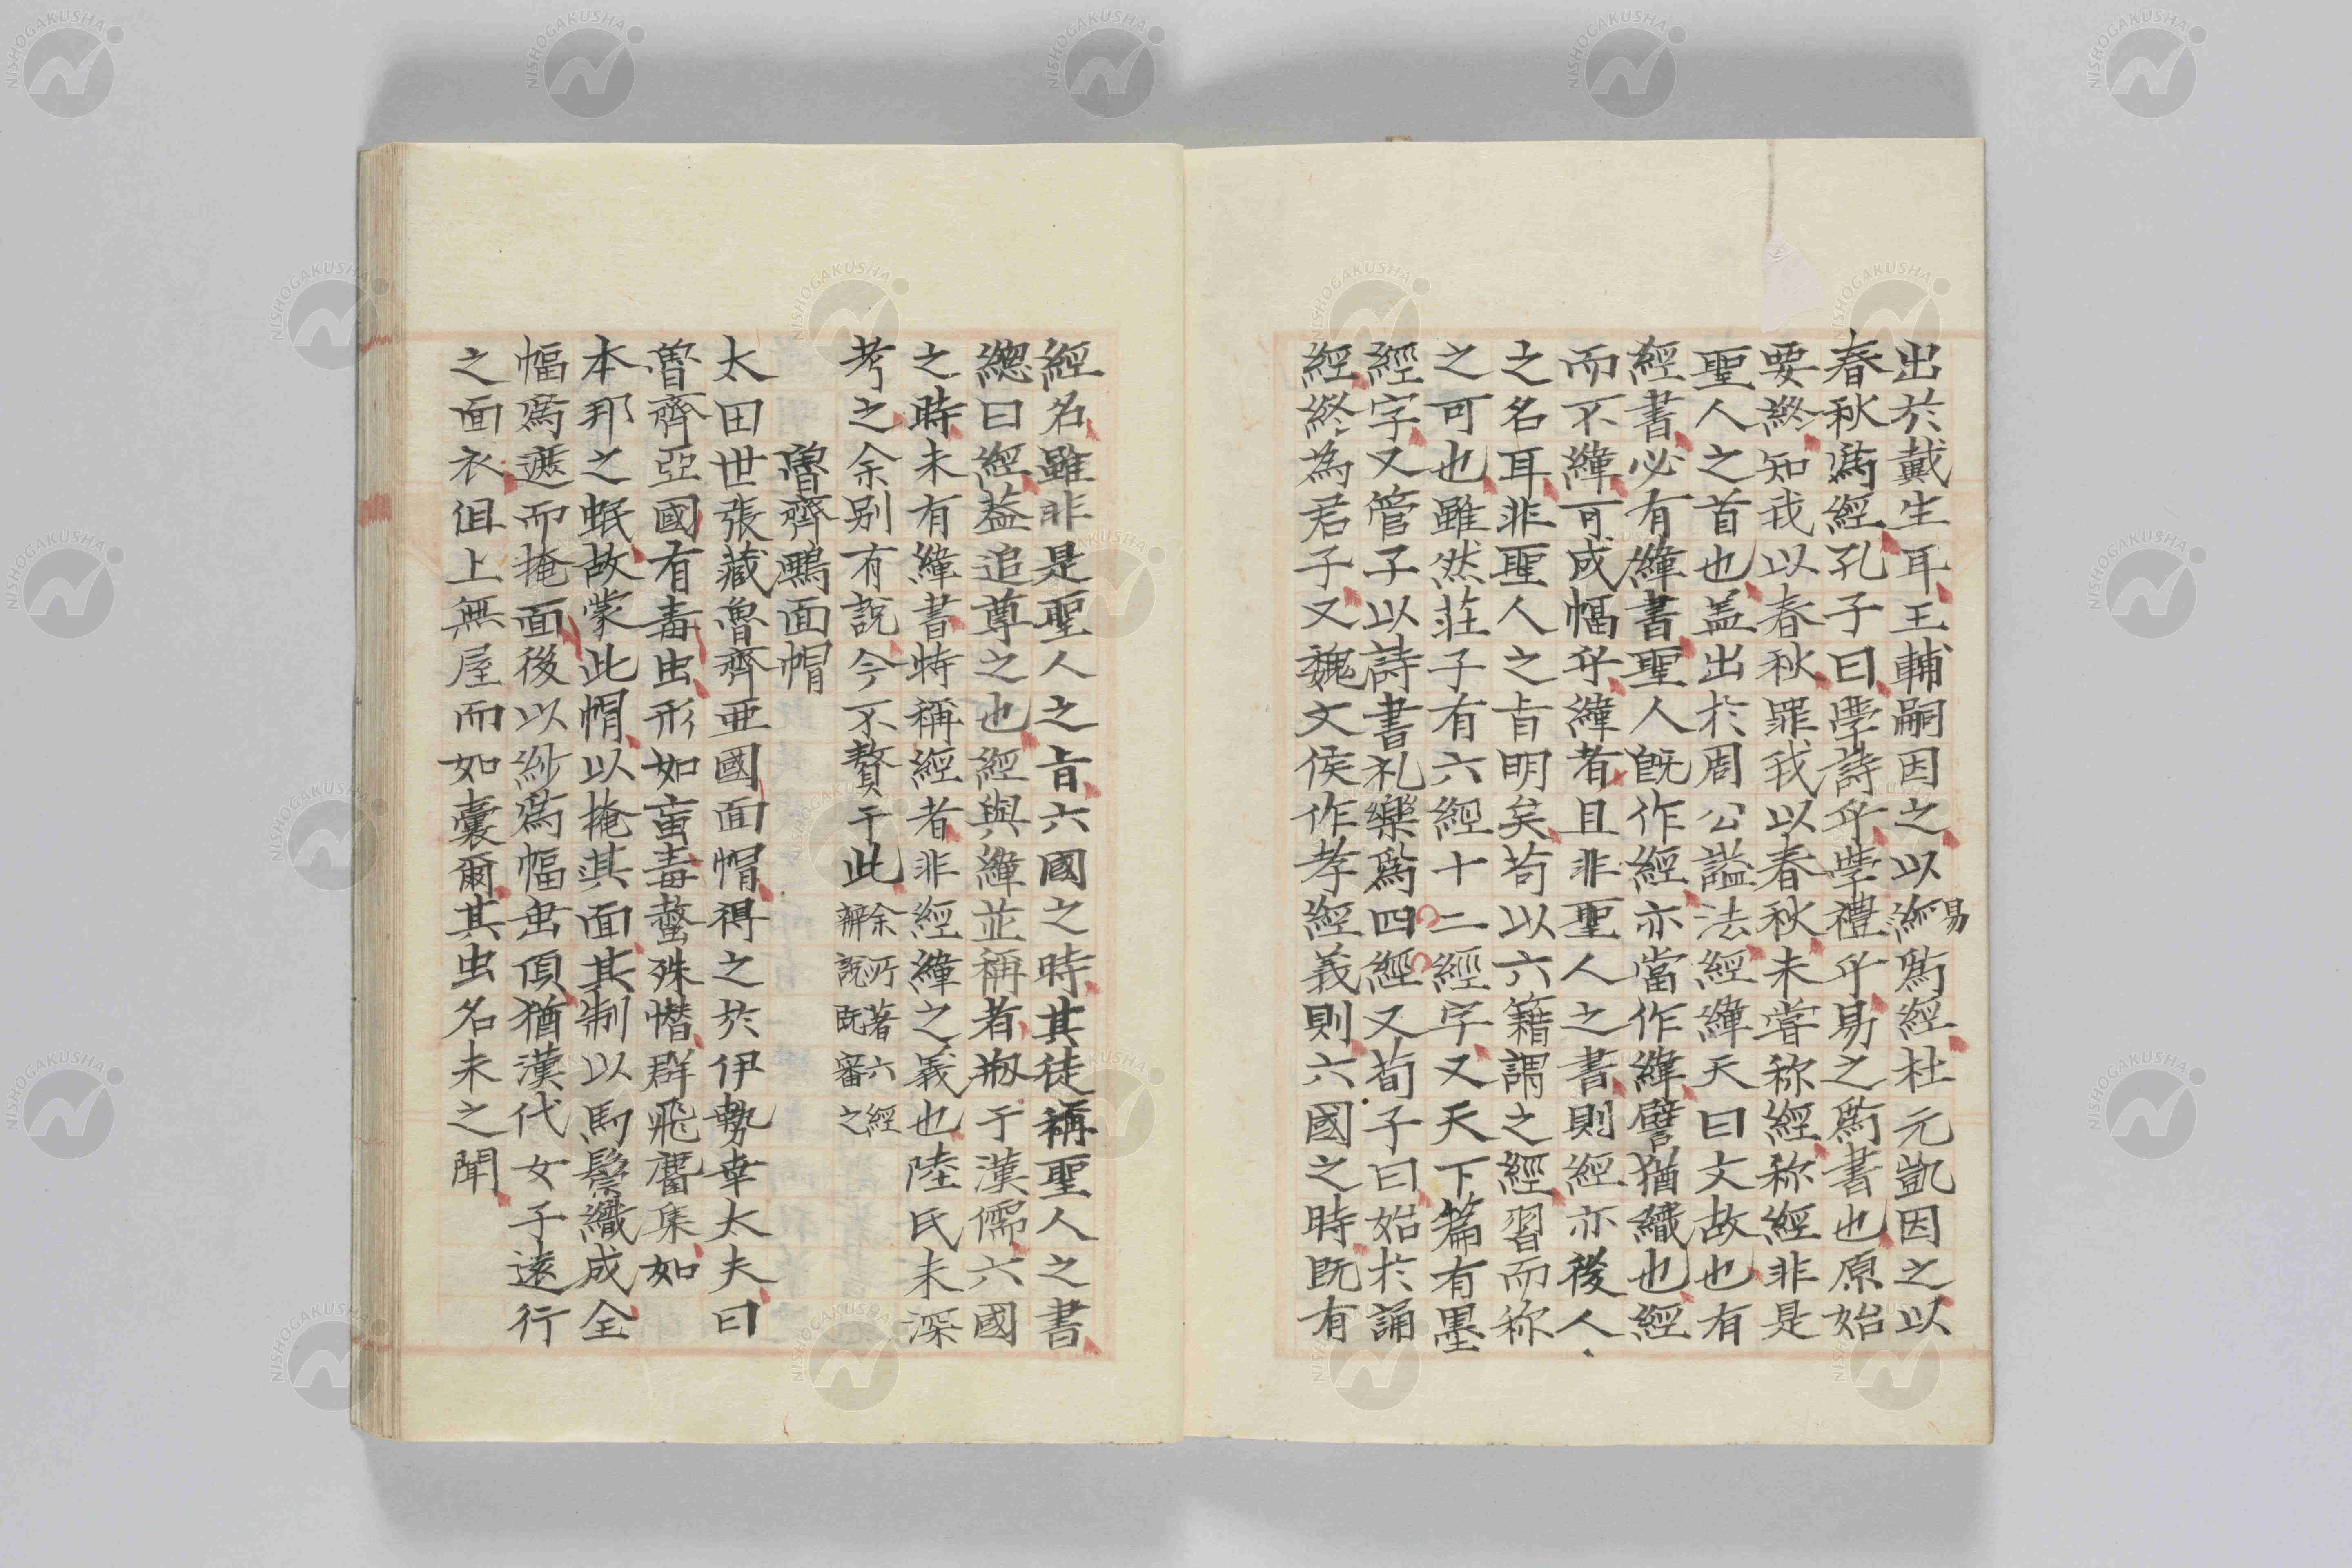 出於戴生耳王輔嗣因之以易爲經杜元凱因之以
春秋爲經孔子曰學詩乎學禮乎易之爲書也原始
要終知我以春秋罪我以春秋未甞称經称經非是
聖人之首也盖出於周公謚法經緯天曰文故也有
經書必有緯書聖人既作經亦當作緯譬猶織也經
而不緯可成幅乎緯者且非聖人之書則經亦後人
之名耳非聖人之㫖明矣苟以六籍謂之經習而称
之可也雖然荘子有六經十二經字又天下篇有墨
經字又管子以詩書礼樂爲四經又荀子曰始於誦
經終為君子又魏文侯作孝經義則六國之時既有
經名雖非是聖人之㫖六國之時其徒稱聖人之書
總曰經葢追尊之也經與緯並稱者刱于漢儒六國
之時未有緯書特稱經者非經緯之義也陸氏未深
考之余别有說今不贅于此余所著六經辨說既審之
魯齊鷗面帽
太田世張藏魯齊亜國面帽得之於伊勢幸太夫曰
魯齊亞國有毒虫形如䖟毒螫殊憯群飛麕集如
本邦之蚊故蒙此帽以掩其面其制以馬鬃織成全
幅爲遮而掩面後以紗爲幅岀頂猶漢代女子遠行
之面衣但上無屋而如囊爾其虫名未之聞
NISHOGAKUSHA